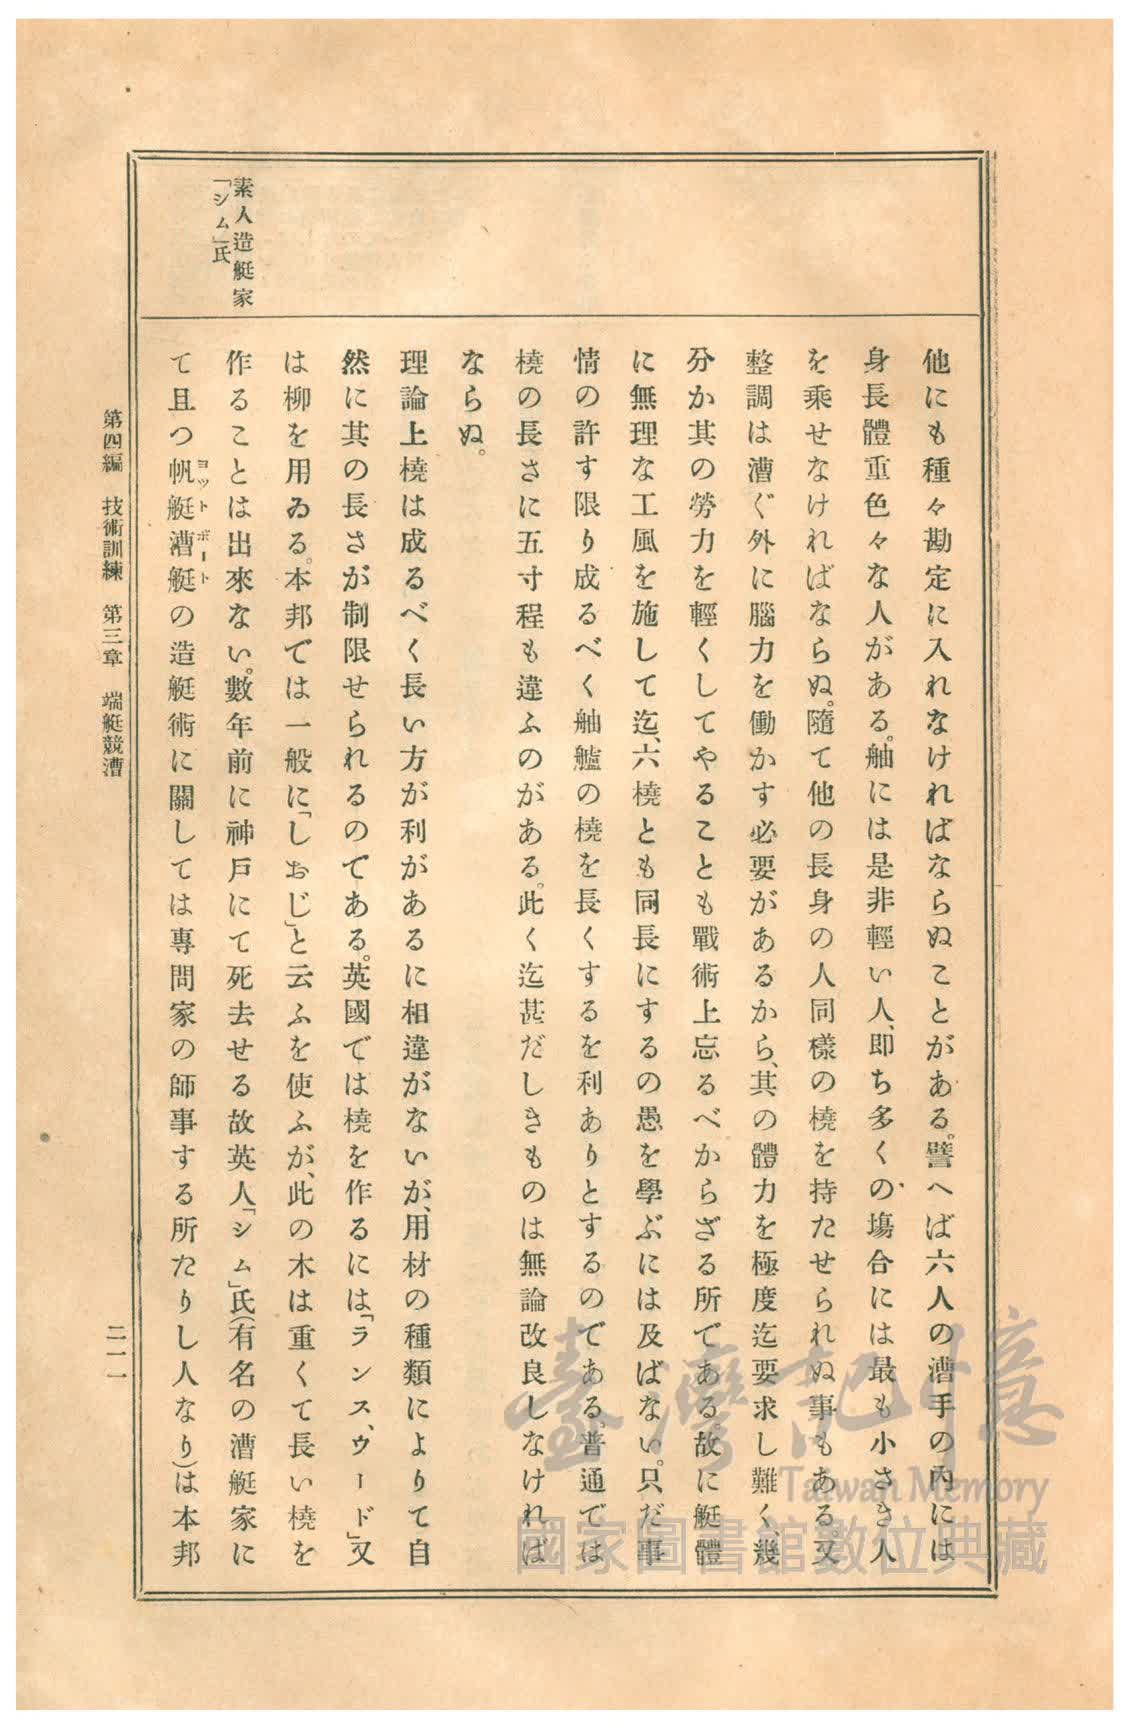 素人造艇家
「シム」氏
他にも種々勘定に入れなければならぬことがある。譬へば六人の漕手の內には
身長體重色々な人がある。舳には是非輕い人、卽ち多くの塲合には最も小さき人
を乘せなければならぬ。隨て他の長身の人同樣の橈を持たせられぬ事もある。又
整調は漕ぐ外に腦力を働かす必要があるから、其の體力を極度迄要求し難く、幾
分か其の勞力を輕くしてやることも戰術上忘るべからざる所である。故に艇體
に無理な工風を施して迄、六橈とも同長にするの愚を學ぶには及ばない。只だ事
情の許す限り成るべく舳艫の橈を長くするを利ありとするのである。普通では
橈の長さに五寸程も違ふのがある。此く迄甚だしきものは無論改良しなければ
ならぬ。
理論上橈は成るべく長い方が利があるに相違がないが、用材の種類によりて自
然に其の長さが制限せられるのである。英國では橈を作るには「ランス、ウード」又
は柳を用ゐる。本邦では一般に「しおじ」と云ふを使ふが、此の木は重くて長い橈を
作ることは出來ない。數年前に神戶にて死去せる故英人「シム」氏(有名の漕艇家に
て且つ帆艇漕艇の造艇術に關しては專門家の師事する所たりし人なり)は本邦
ヨットボート
第四編 技術訓練 第三章 端艇競漕
二一一
臺灣記憶
Taiwan Memory
國家圖書館數位典藏